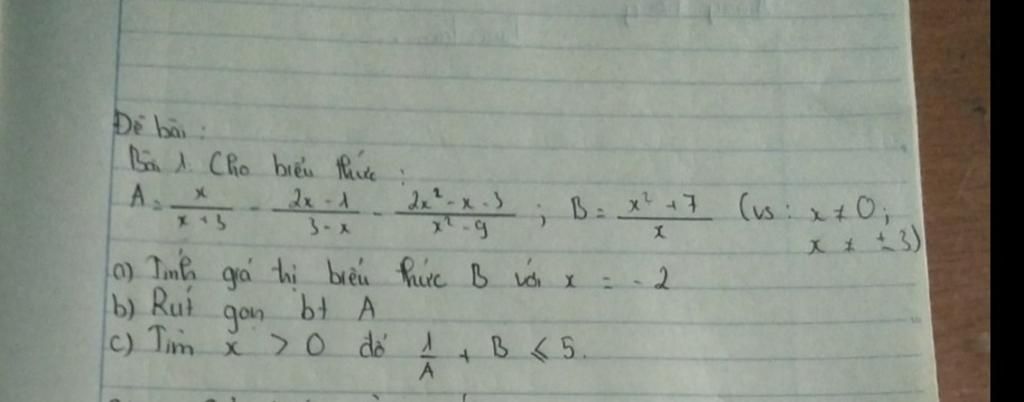 Đề bài:
Bài 1. Cho biểu thức:
A = x/(x+3) - (2x-1)/(3-x) - (2x²-x-3)/(x²-9); B = (x²+7)/x (vs: x≠0;
x ≠ ±3)
a) Tính giá trị biểu thức B với x = -2
b) Rút gọn bt A
c) Tìm x > 0 để 1/A + B ≤ 5.